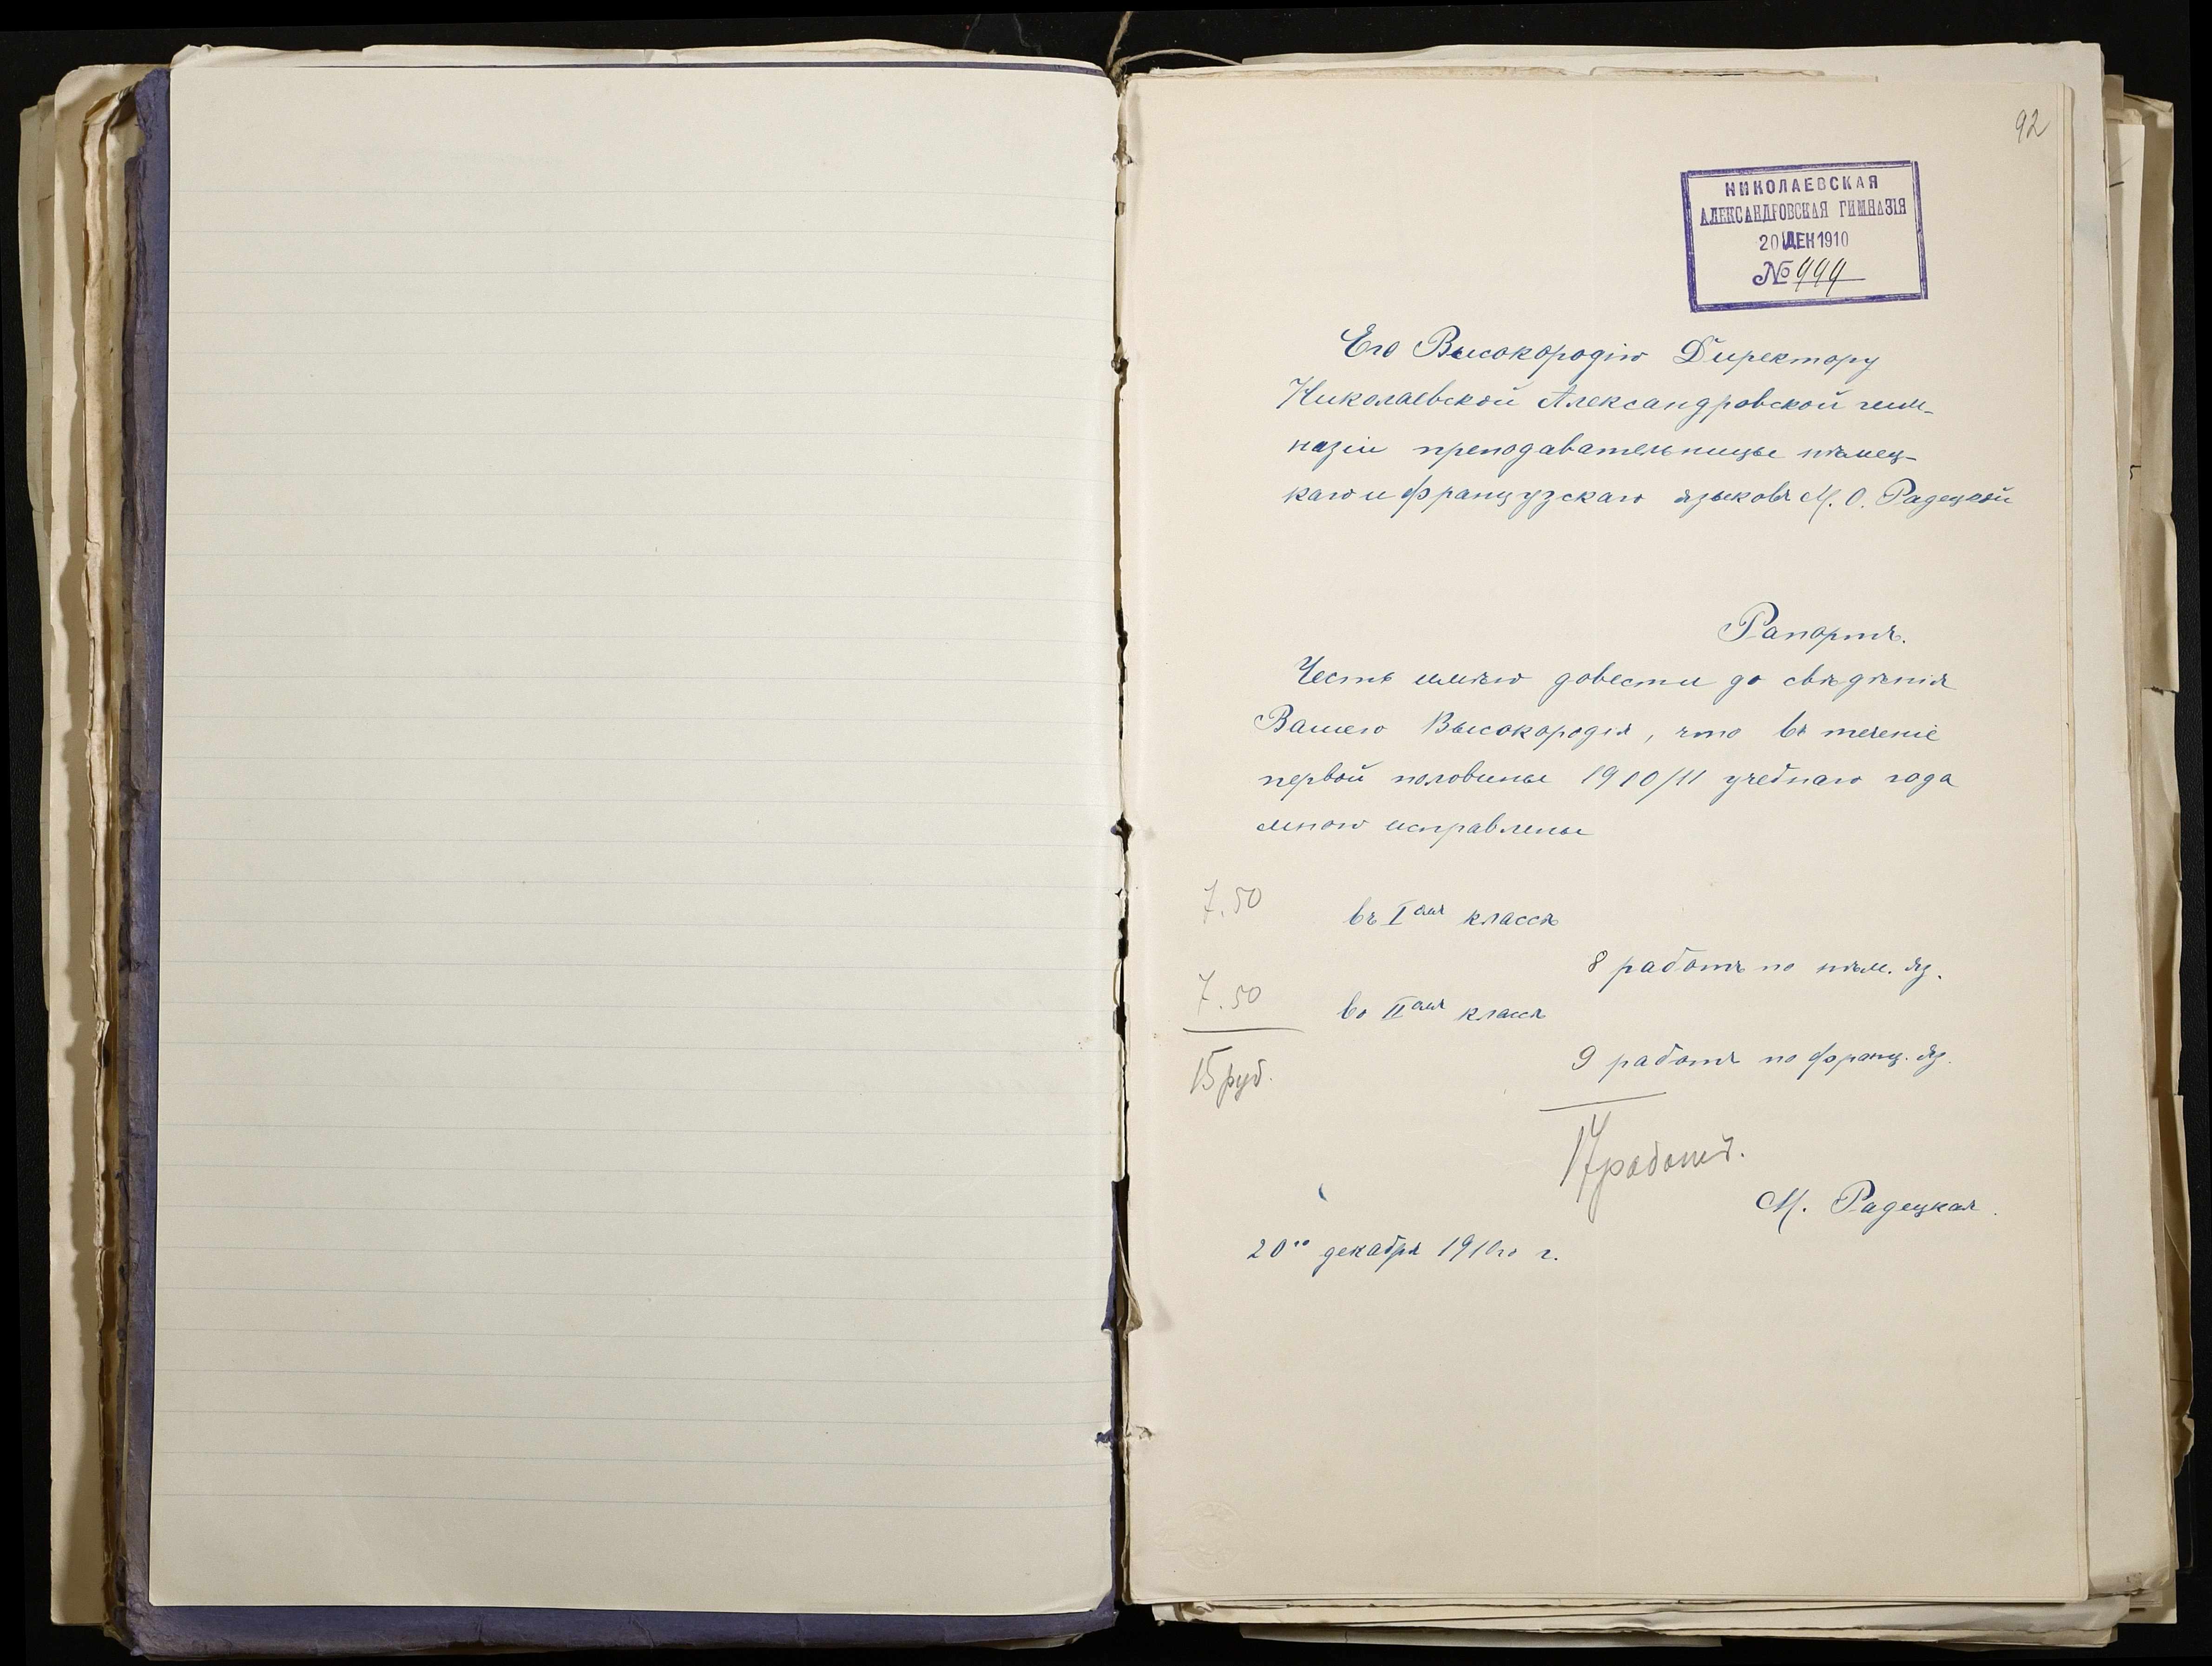 92
НИКОЛАЕВСКАЯ
АЛЕКСАНДРОВСКАЯ ГИМНАЗІЯ
20 ДЕК 1910
№ 999
Его Высокородію Директору
Николаевской Александровской гим-
назіи преподавательницы нѣмец-
каго и французскаго языковъ М. О. Радецкой
Рапортъ.
Честь имѣю довести до свѣдѣнія
Вашего Высокородія, что въ теченіе
первой половины 1910/11 учебнаго года
мною исправлены
7.50
въ Iомъ классѣ
8 работъ по нѣм. яз.
7.50
во IIомъ классѣ
9 работъ по франц. яз.
15 руб.
17 работъ.
М. Радецкая.
20го декабря 1910го г.